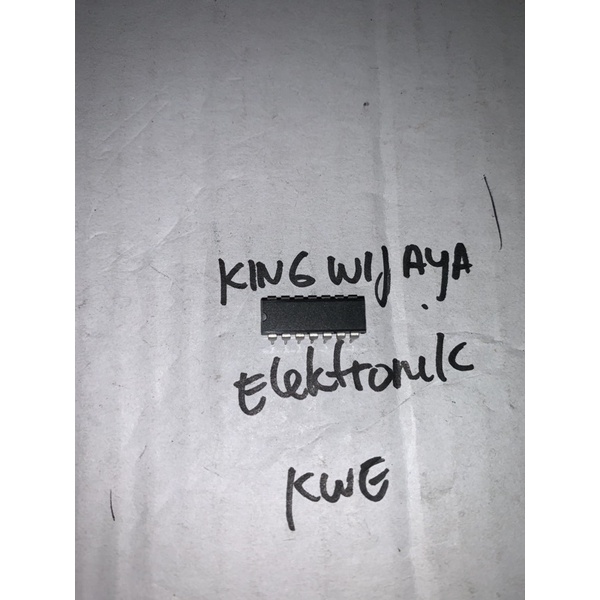 KING WIJAYA
Elektronik
KWE